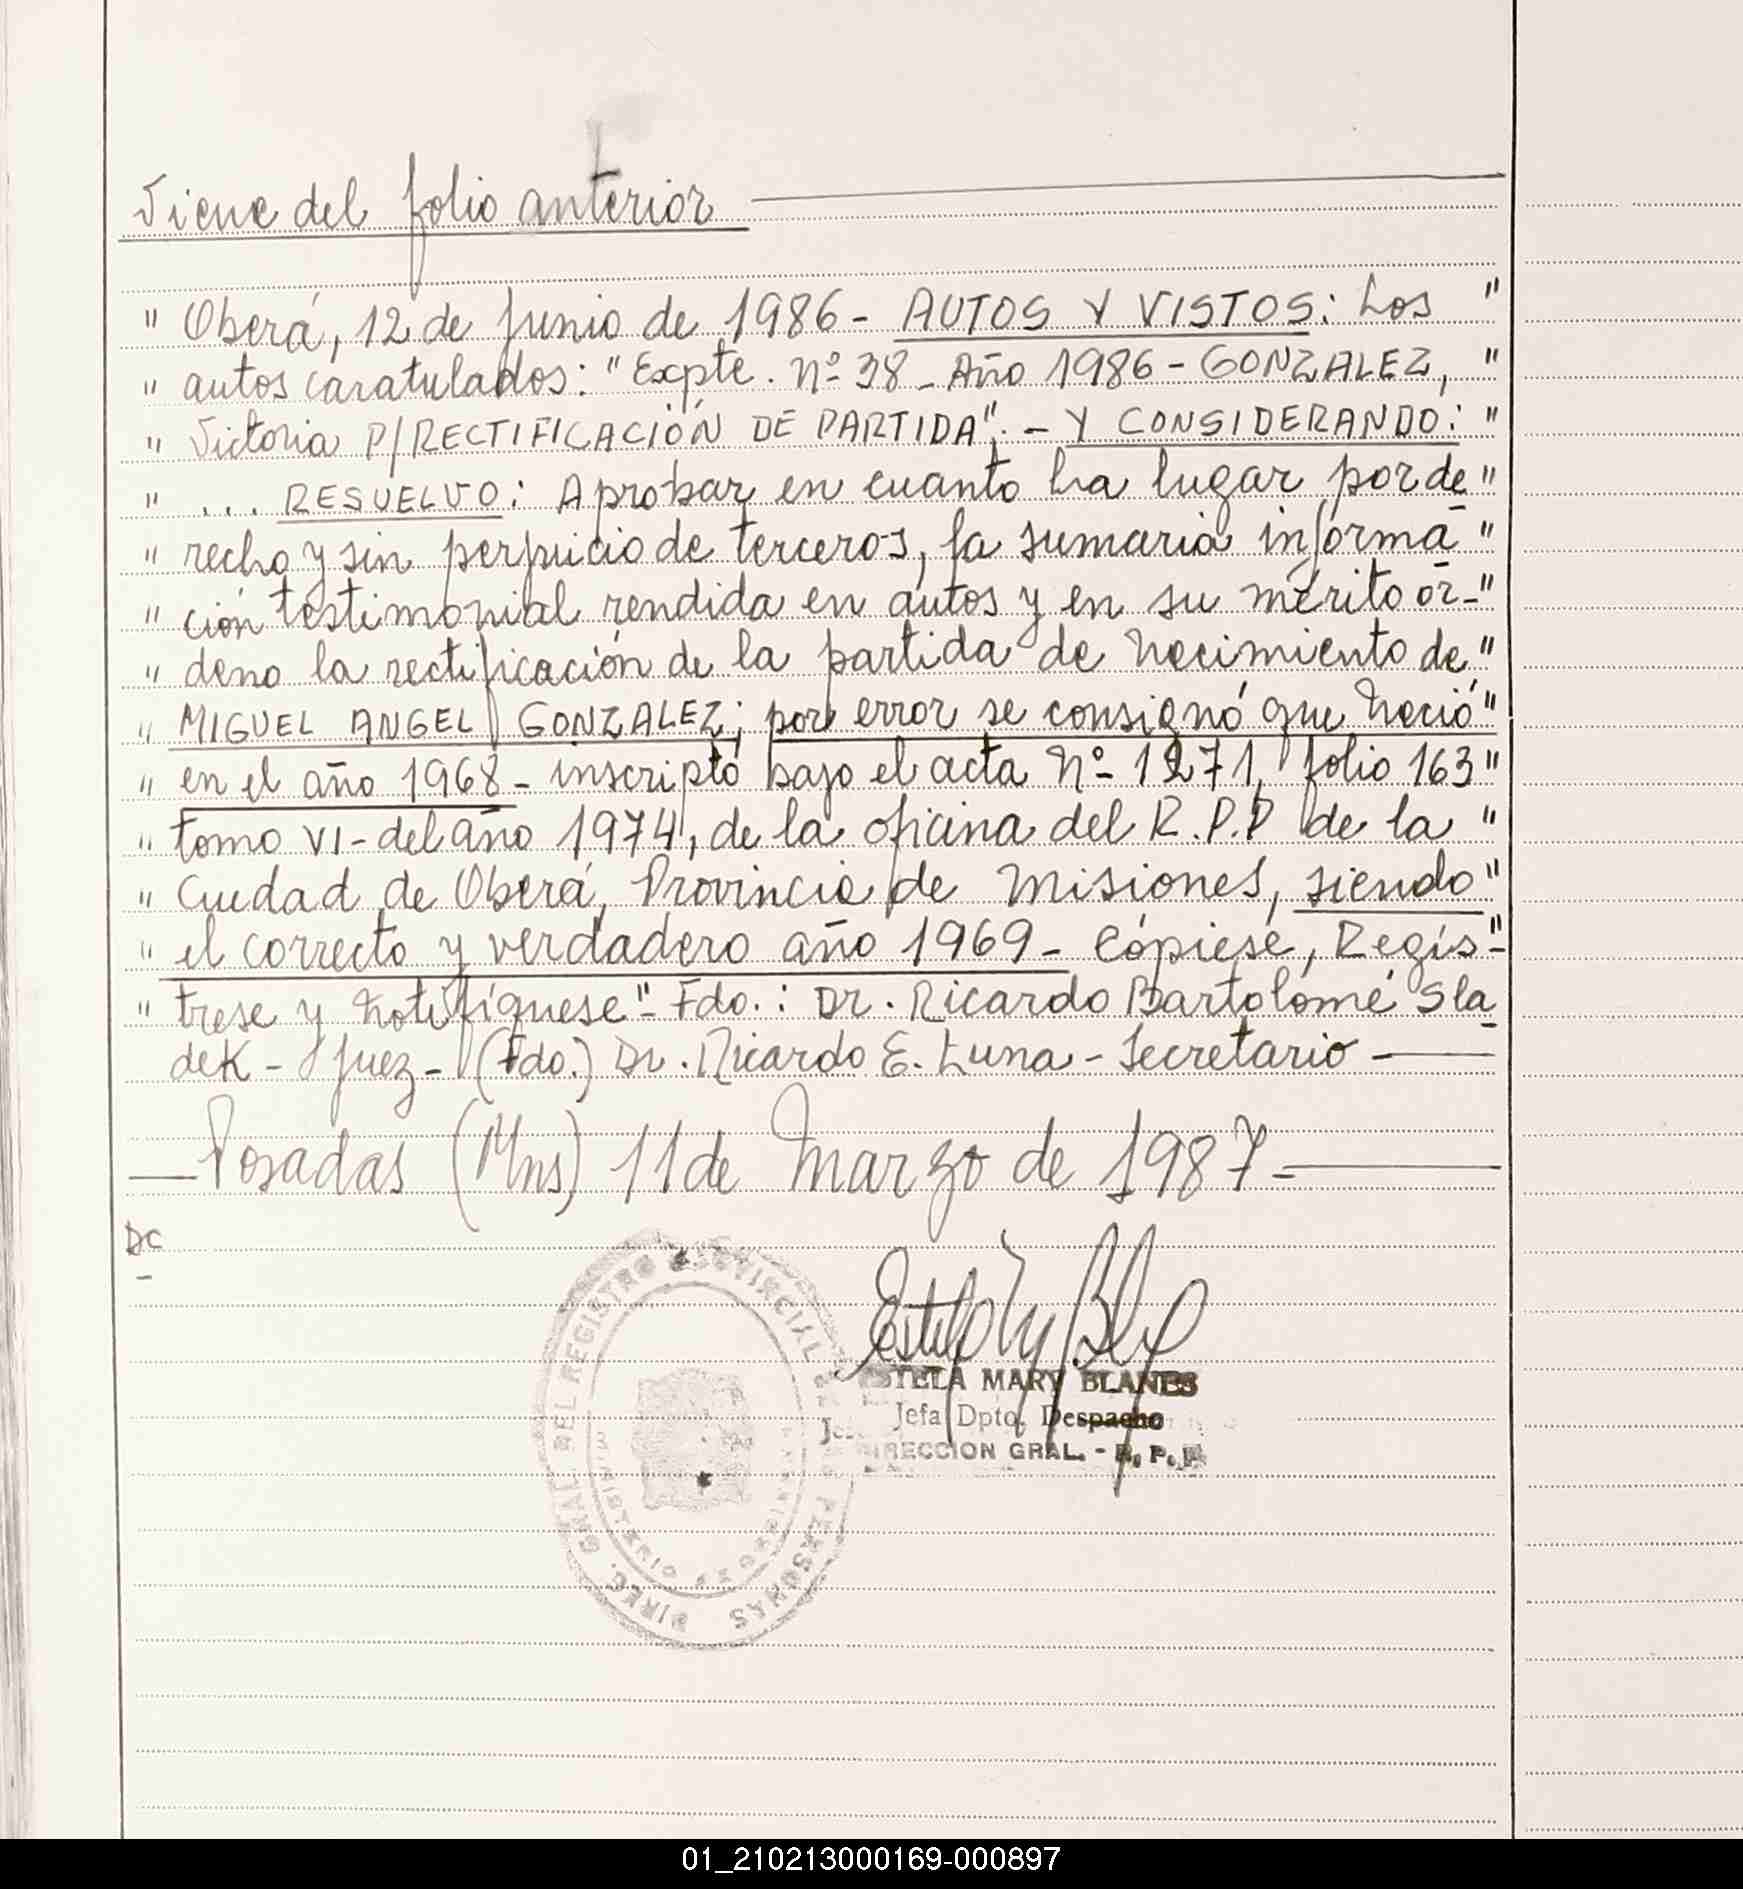 Viene del folio anterior
" Oberá, 12 de Junio de 1986- AUTOS Y VISTOS: Los "
" autos caratulados: "Expte. Nº 38 - Año 1986 - GONZALEZ, "
" Victoria P/RECTIFICACIÓN DE PARTIDA".- Y CONSIDERANDO: "
" ... RESUELVO: Aprobar en cuanto ha lugar por de "
" recho y sin perjuicio de terceros, la sumaria informa "
" ción testimonial rendida en autos y en su mérito or- "
" deno la rectificación de la partida de Nacimiento de "
" MIGUEL ANGEL GONZALEZ; por error se consignó que Nació "
" en el año 1968 - inscripto bajo el acta Nº 1271, folio 163 "
" tomo VI - del año 1974, de la oficina del R.P.P de la "
" Ciudad de Oberá, Provincia de Misiones, siendo "
" el correcto y verdadero año 1969 - Cópiese, Regís- "
" trese y Notifíquese" - Fdo.: Dr. Ricardo Bartolomé Sla
dek - Juez - (Fdo.) Dr. Ricardo E. Luna - Secretario -
Posadas (Mns) 11 de Marzo de 1987-
DC
DIREC. GRAL. DEL REGISTRO PROVINCIAL DE LAS PERSONAS
MINISTERIO DE
ESTELA MARY BLANES
Jefa Dpto. Despacho
DIRECCION GRAL. - R. P. P.
01_210213000169-000897